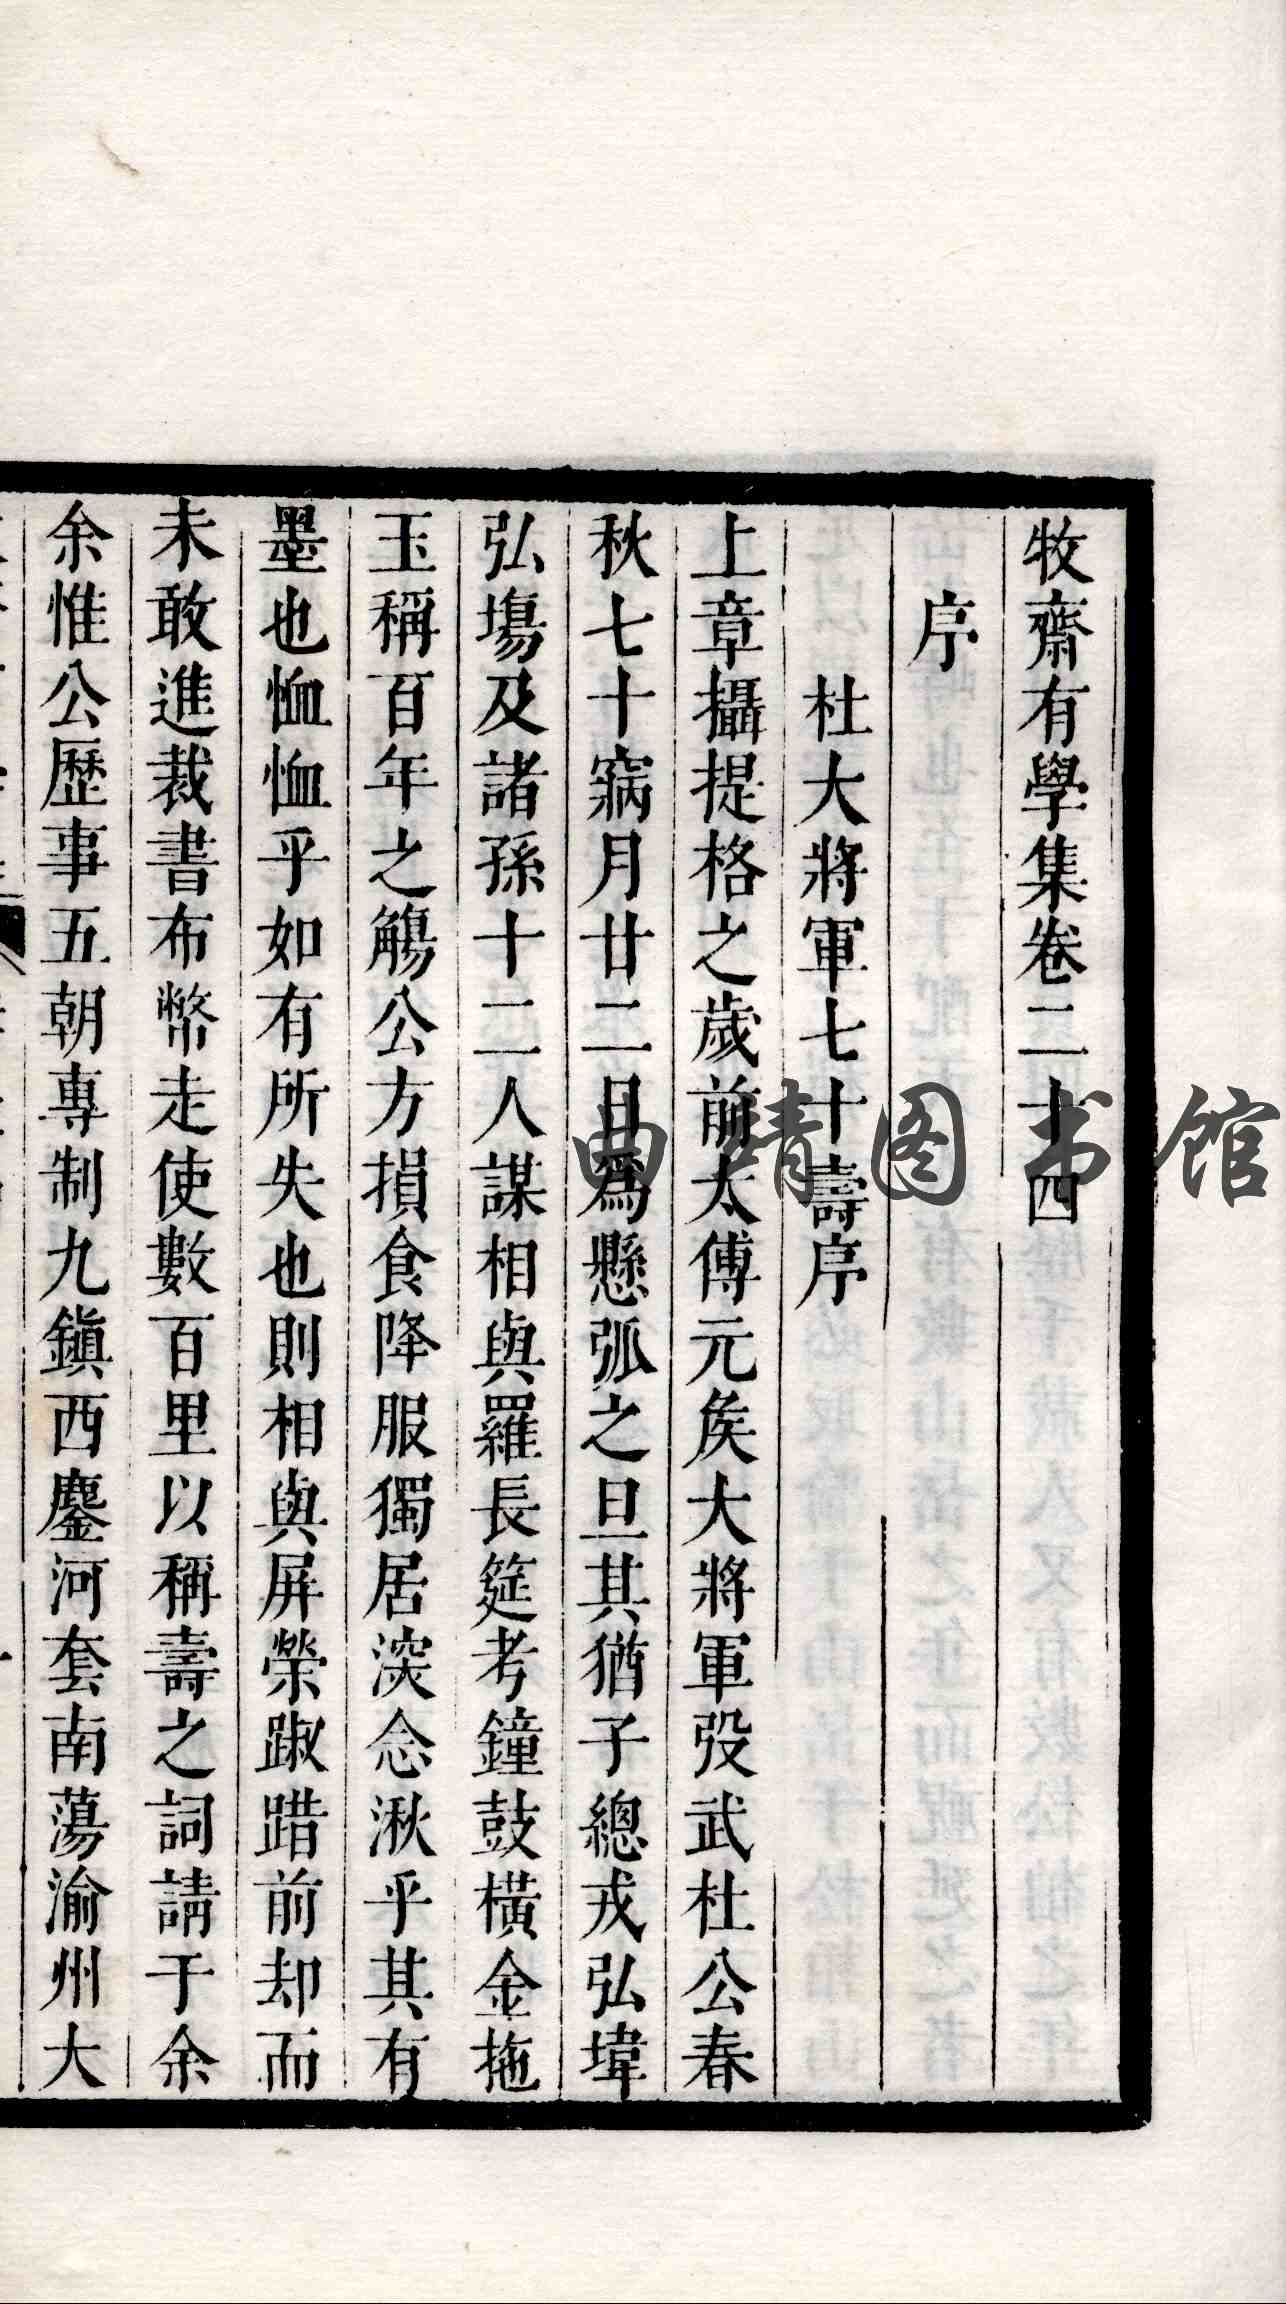 牧齋有學集卷二十四
序
杜大將軍七十壽序
上章攝提格之歲前太傅元矦大將軍弢武杜公春
秋七十寎月廿二日爲懸弧之旦其猶子總戎弘㙔
弘塲及諸孫十二人謀相與羅長筵考鐘鼓橫金拖
玉稱百年之觴公方損食降服獨居深念湫乎其有
墨也恤恤乎如有所失也則相與屏營踧踖前却而
未敢進裁書布幣走使數百里以稱壽之詞請于余
余惟公歷事五朝專制九鎭西鏖河套南蕩渝州大
曲靖图书馆